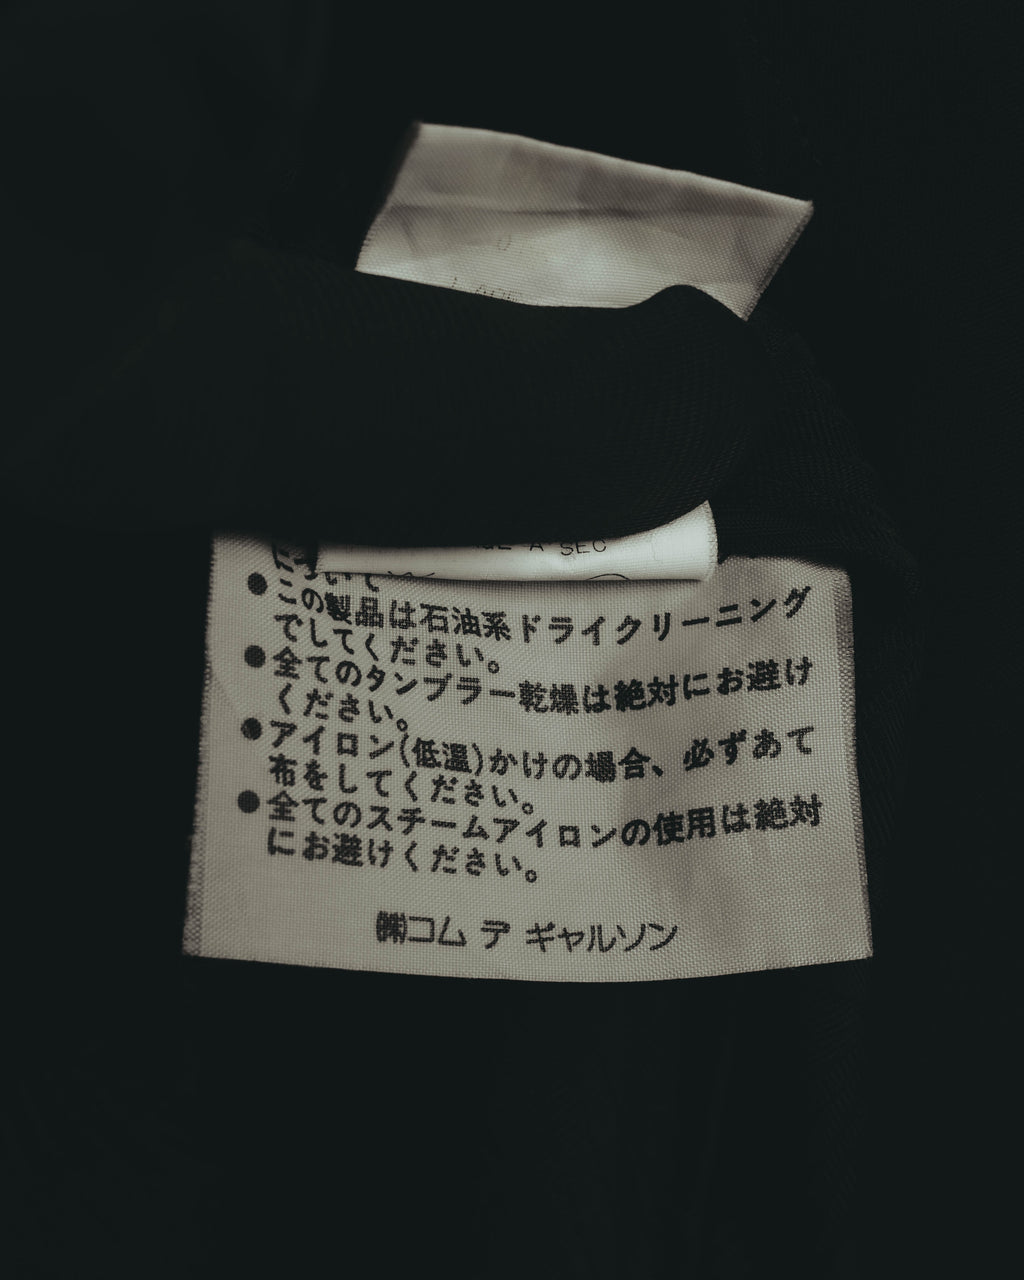 について
●この製品は石油系ドライクリーニング
でしてください。
●全てのタンブラー乾燥は絶対にお避け
ください。
●アイロン(低温)かけの場合、必ずあて
布をしてください。
●全てのスチームアイロンの使用は絶対
にお避けください。
㈱コム デ ギャルソン
A SEC